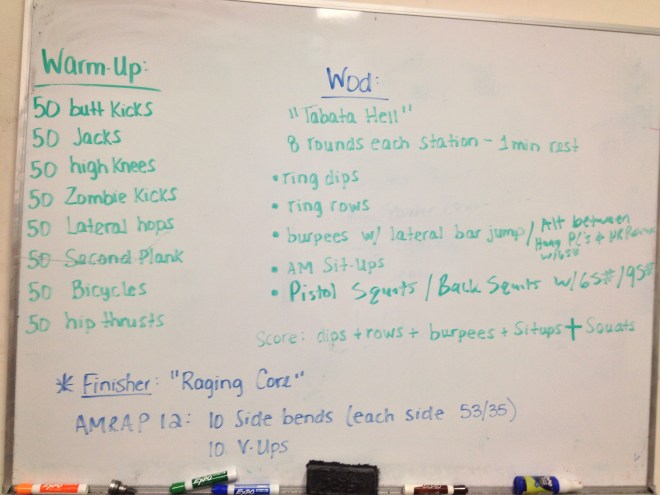 Warm-Up:
50 butt Kicks
50 Jacks
50 high Knees
50 Zombie Kicks
50 Lateral hops
50 Second Plank
50 Bicycles
50 hip thrusts
Wod:
"Tabata Hell"
8 rounds each station - 1 min rest
• ring dips
• ring rows
• burpees w/ lateral bar jump / Alt between
Hang PC's &
w/65#
• AM Sit-Ups
• Pistol Squats / Back Squats w/65#/95#
Score: dips + rows + burpees + Situps + Squats
* Finisher: "Raging Core"
AMRAP 12: 10 Side bends (each side 53/35)
10 V-Ups
EXPO
EXPO
EXPO
EXPO